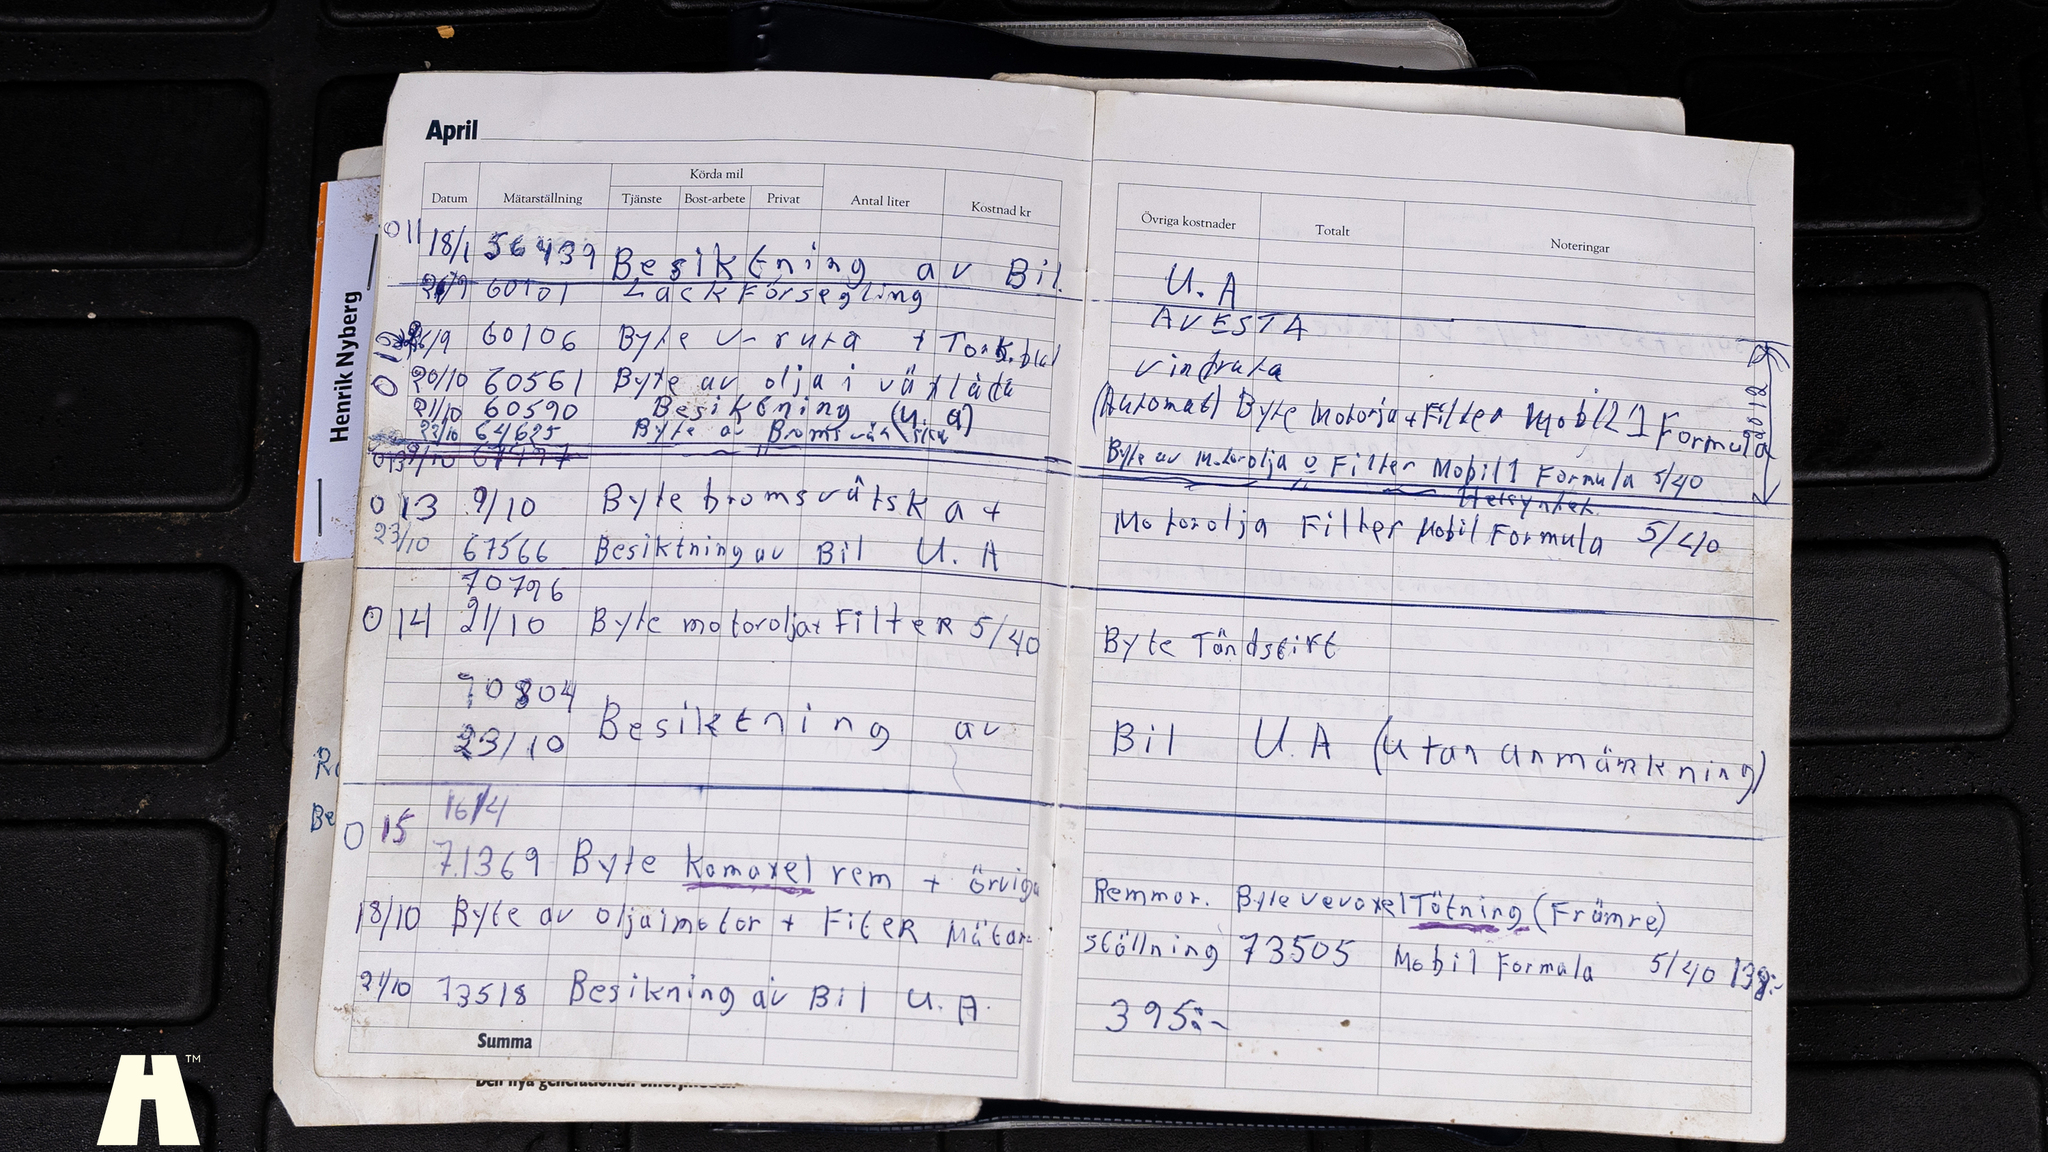 April
Körda mil
Datum Mätarställning Tjänste Bost-arbete Privat Antal liter Kostnad kr
Övriga kostnader Totalt Noteringar
011 18/1 56439 Besiktning av Bil U.A
60101 Lackförsegling AVESTA
26/9 60106 Byte v-ruta + Tork.blad vindruta
20/10 60561 Byte av olja i växlåda (Automat) Byte Motorja+Filter Mobil 1 Formula
012
21/10 60590 Besiktning (u.a)
23/10 64625 Byte av Bromsvätska Byte av Motorolja o Filter Mobil1 Formula 5/40
013 9/10 67477 Helsyntet
013 9/10 Byte bromsvätska + Motorolja Filter Mobil Formula 5/40
23/10 67566 Besiktning av Bil U.A
70796
014 21/10 Byte motorolja+ Filter 5/40 Byte Tändstift
70804
23/10 Besiktning av Bil U.A (utan anmärkning)
16/4
015 71369 Byte Kamaxel rem + örviga Remmar. Byte vevaxel Tätning (Främre)
18/10 Byte av olja i motor + Filter Mätar- ställning 73505 Mobil Formula 5/40 139:-
21/10 73518 Besikning av Bil U.A. 395:-
Summa
Henrik Nyberg
Be
Den nya generationen smörjmedel
H™